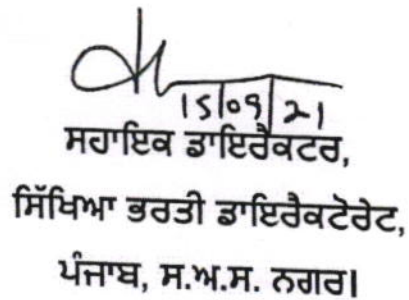 15/09/21
ਸਹਾਇਕ ਡਾਇਰੈਕਟਰ,
ਸਿੱਖਿਆ ਭਰਤੀ ਡਾਇਰੈਕਟੋਰੇਟ,
ਪੰਜਾਬ, ਸ.ਅ.ਸ. ਨਗਰ।